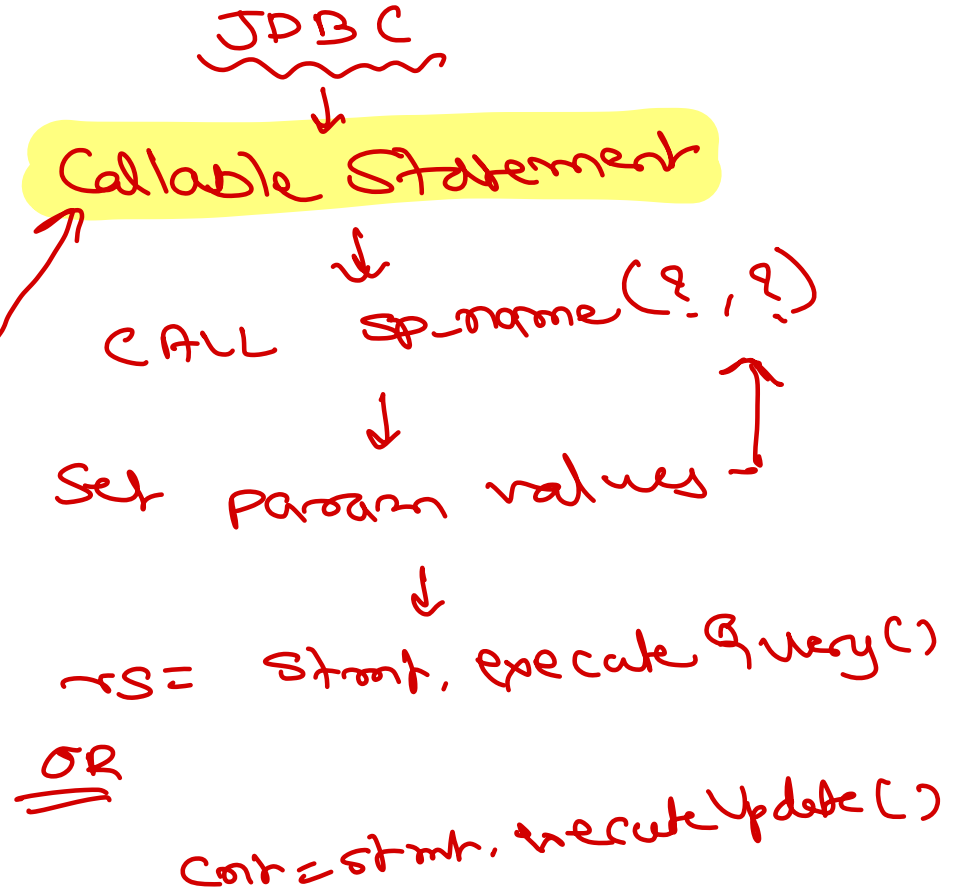 JDBC
Callable Statement
CALL sp_name(?, ?)
Set param values
rs = stmt. executeQuery()
OR
cnt = stmt. executeUpdate()